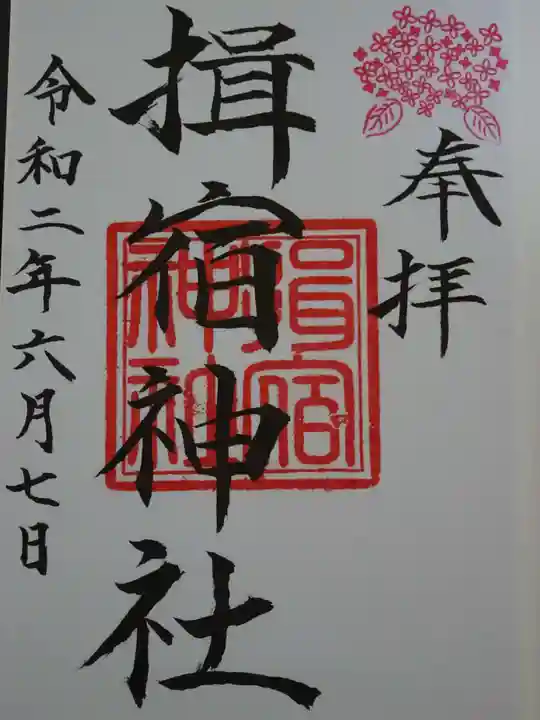 奉拝
揖宿神社
揖宿
神社
令和二年六月七日